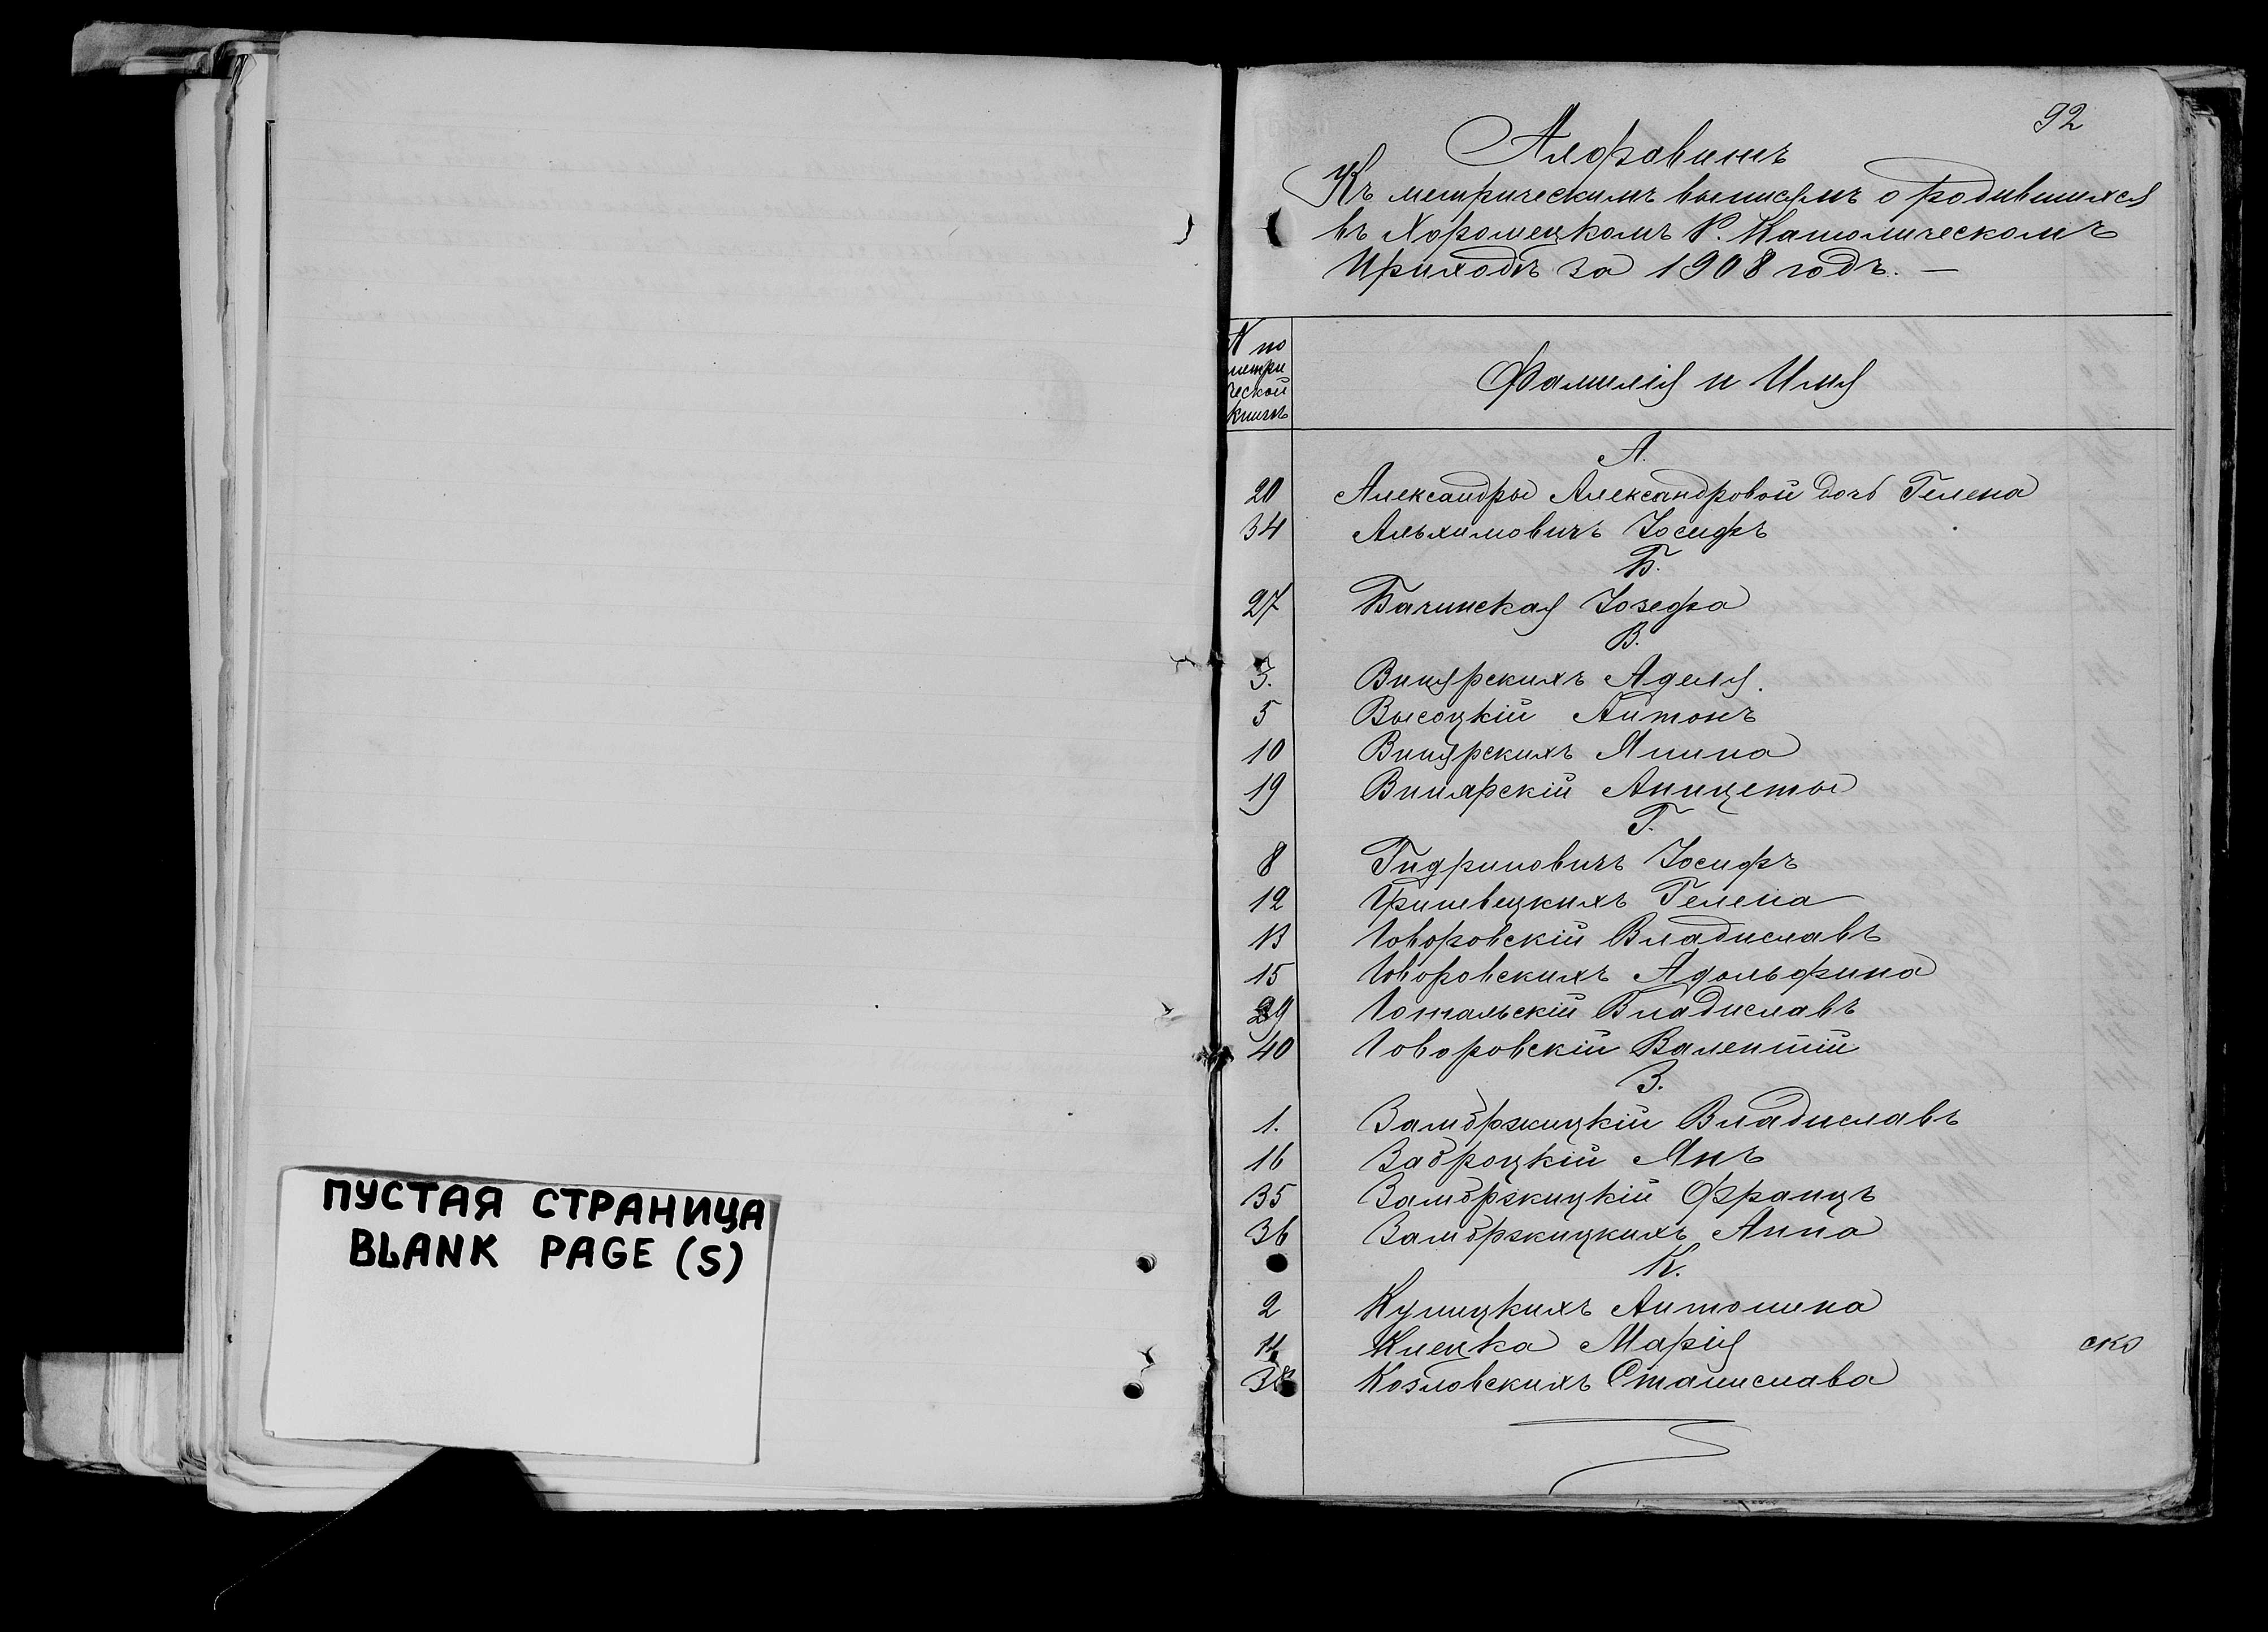 ПУСТАЯ СТРАНИЦА
BLANK PAGE (S)
92
Алфавитъ
Къ метрическимъ выписямъ о родившихся
въ Хорошецкомъ Р. Католическомъ
Приходѣ за 1908 годъ. —
№ по
метри
ческой
книгѣ
Фамилія и Имя
А.
20 Александры Александровой дочь Гелена
34 Альхимовичъ Іосифъ
Б.
27 Бачинская Іозефа
В.
3. Винярскихъ Аделя.
5 Высоцкій Антонъ
10 Винярскихъ Янина
19 Винярскій Аницеты
Г.
8 Гидриновичъ Іосифъ
12 Гриневецкихъ Гелена
13 Говоровскій Владиславъ
15 Говоровскихъ Адольфина
29 Гональскій Владиславъ
40 Говоровскій Валентій
З.
1. Замбржицкій Владиславъ
16 Заброцкій Янъ
35 Замбржицкій Францъ
36 Замбржицкихъ Анна
К.
2 Куницкихъ Антонина
14 Клецка Марія
38 Козловскихъ Станислава